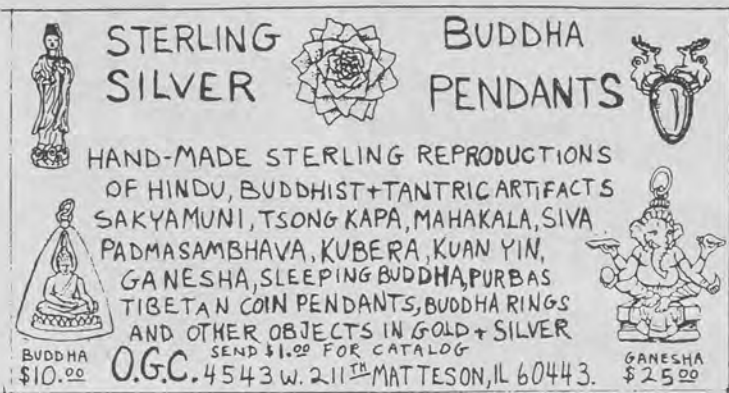 STERLING SILVER
BUDDHA PENDANTS
HAND-MADE STERLING REPRODUCTIONS
OF HINDU, BUDDHIST + TANTRIC ARTIFACTS
SAKYAMUNI, TSONG KAPA, MAHAKALA, SIVA
PADMASAMBHAVA, KUBERA, KUAN YIN,
GANESHA, SLEEPING BUDDHA, PURBAS
TIBETAN COIN PENDANTS, BUDDHA RINGS
AND OTHER OBJECTS IN GOLD + SILVER
SEND $1.00 FOR CATALOG
O.G.C. 4543 W. 211TH MATTESON, IL 60443.
BUDDHA
$10.00
GANESHA
$25.00